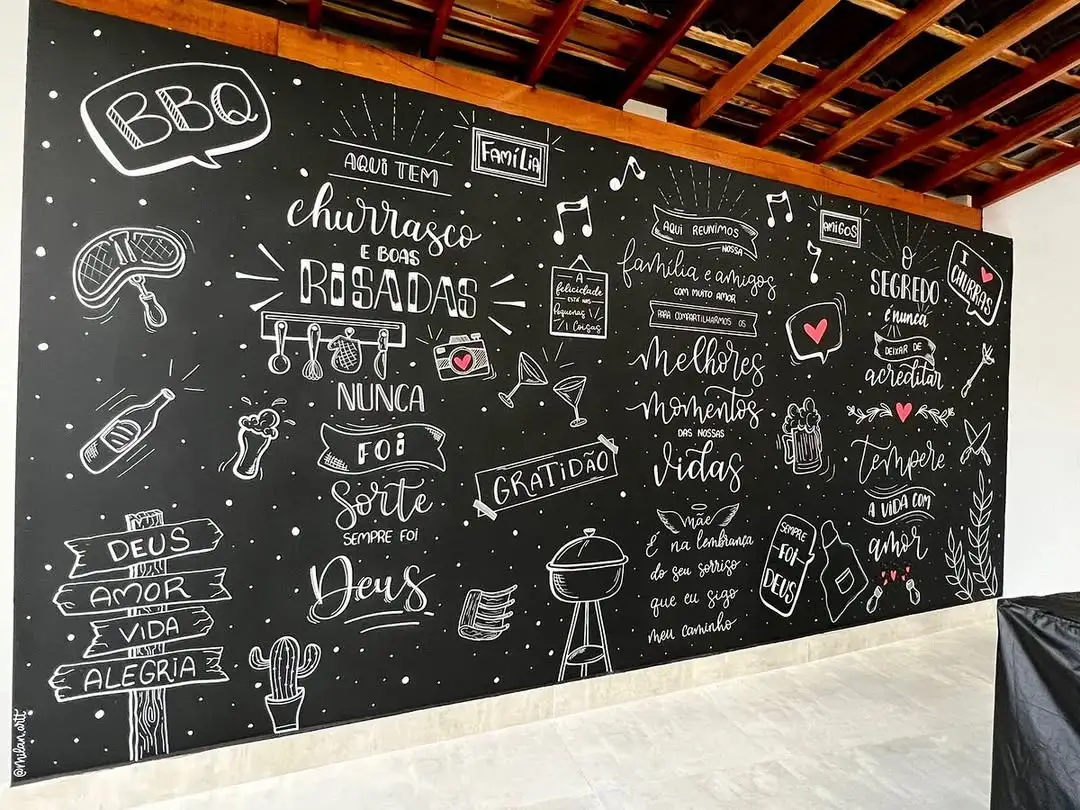 BBQ
AQUI TEM
churrasco
E BOAS
RISADAS
NUNCA
FOI
Sorte
SEMPRE FOI
Deus
DEUS
AMOR
VIDA
ALEGRIA
@milan.artt
FAMÍLIA
A
felicidade
ESTÁ NAS
Pequenas
Coisas
GRATIDÃO
AQUI REUNIMOS
NOSSA
família e amigos
COM MUITO AMOR
PARA COMPARTILHARMOS OS
Melhores
Momentos
DAS NOSSAS
Vidas
mãe
É na lembrança
do seu sorriso
que eu sigo
meu caminho
AMIGOS
SEMPRE
FOI
DEUS
O
SEGREDO
é nunca
DEIXAR DE
acreditar
Tempere
A VIDA COM
amor
I
CHURRAS